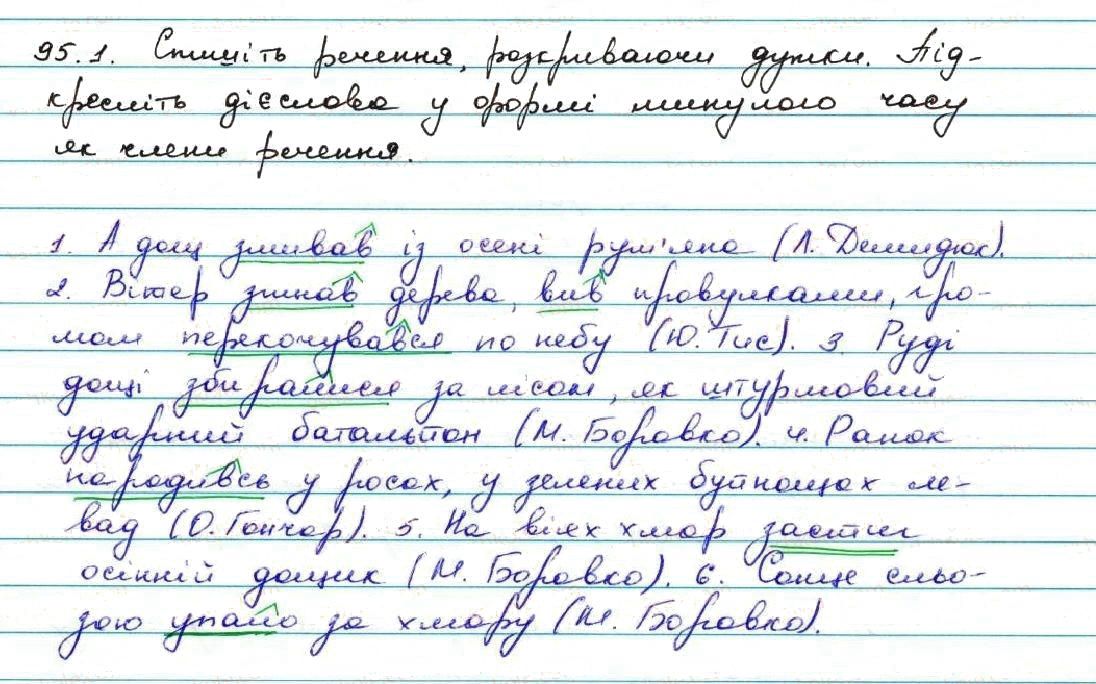 95.1. Спишіть речення, розкриваючи дужки. Під-
кресліть дієслова у формі минулого часу
як члени речення.
1. А дощ змивав із осені рум'яна (Л. Демидюк).
2. Вітер згинав дерева, вив провулками, гро-
мом перекочувався по небу (Ю. Тис). 3. Руді
дощі збирались за лісом, як штурмовий
ударний батальйон (М. Боровко). 4. Ранок
народивсь у росах, у зелених буйнощах ле-
вад (О. Гончар). 5. На віях хмар застиг
осінній дощик (М. Боровко). 6. Сонце сльо-
зою упало за хмару (М. Боровко).